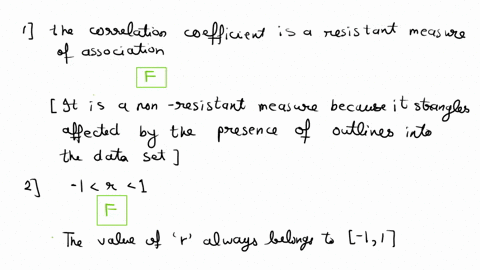 1] the correlation coefficient is a resistant measure
of association
F
[It is a non-resistant measure because it strangles
affected by the presence of outlines into
the data set]
2] -1 < r < 1
F
. The value of 'r' always belongs to [-1, 1]